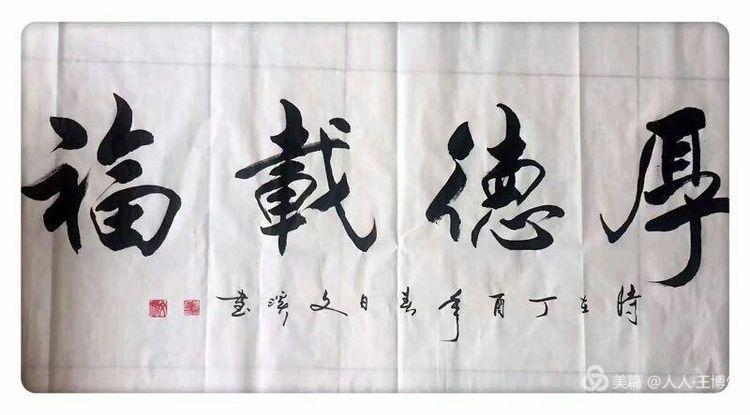 厚德載福
時在丁酉年春日文濱書
美篇 @人人·王博